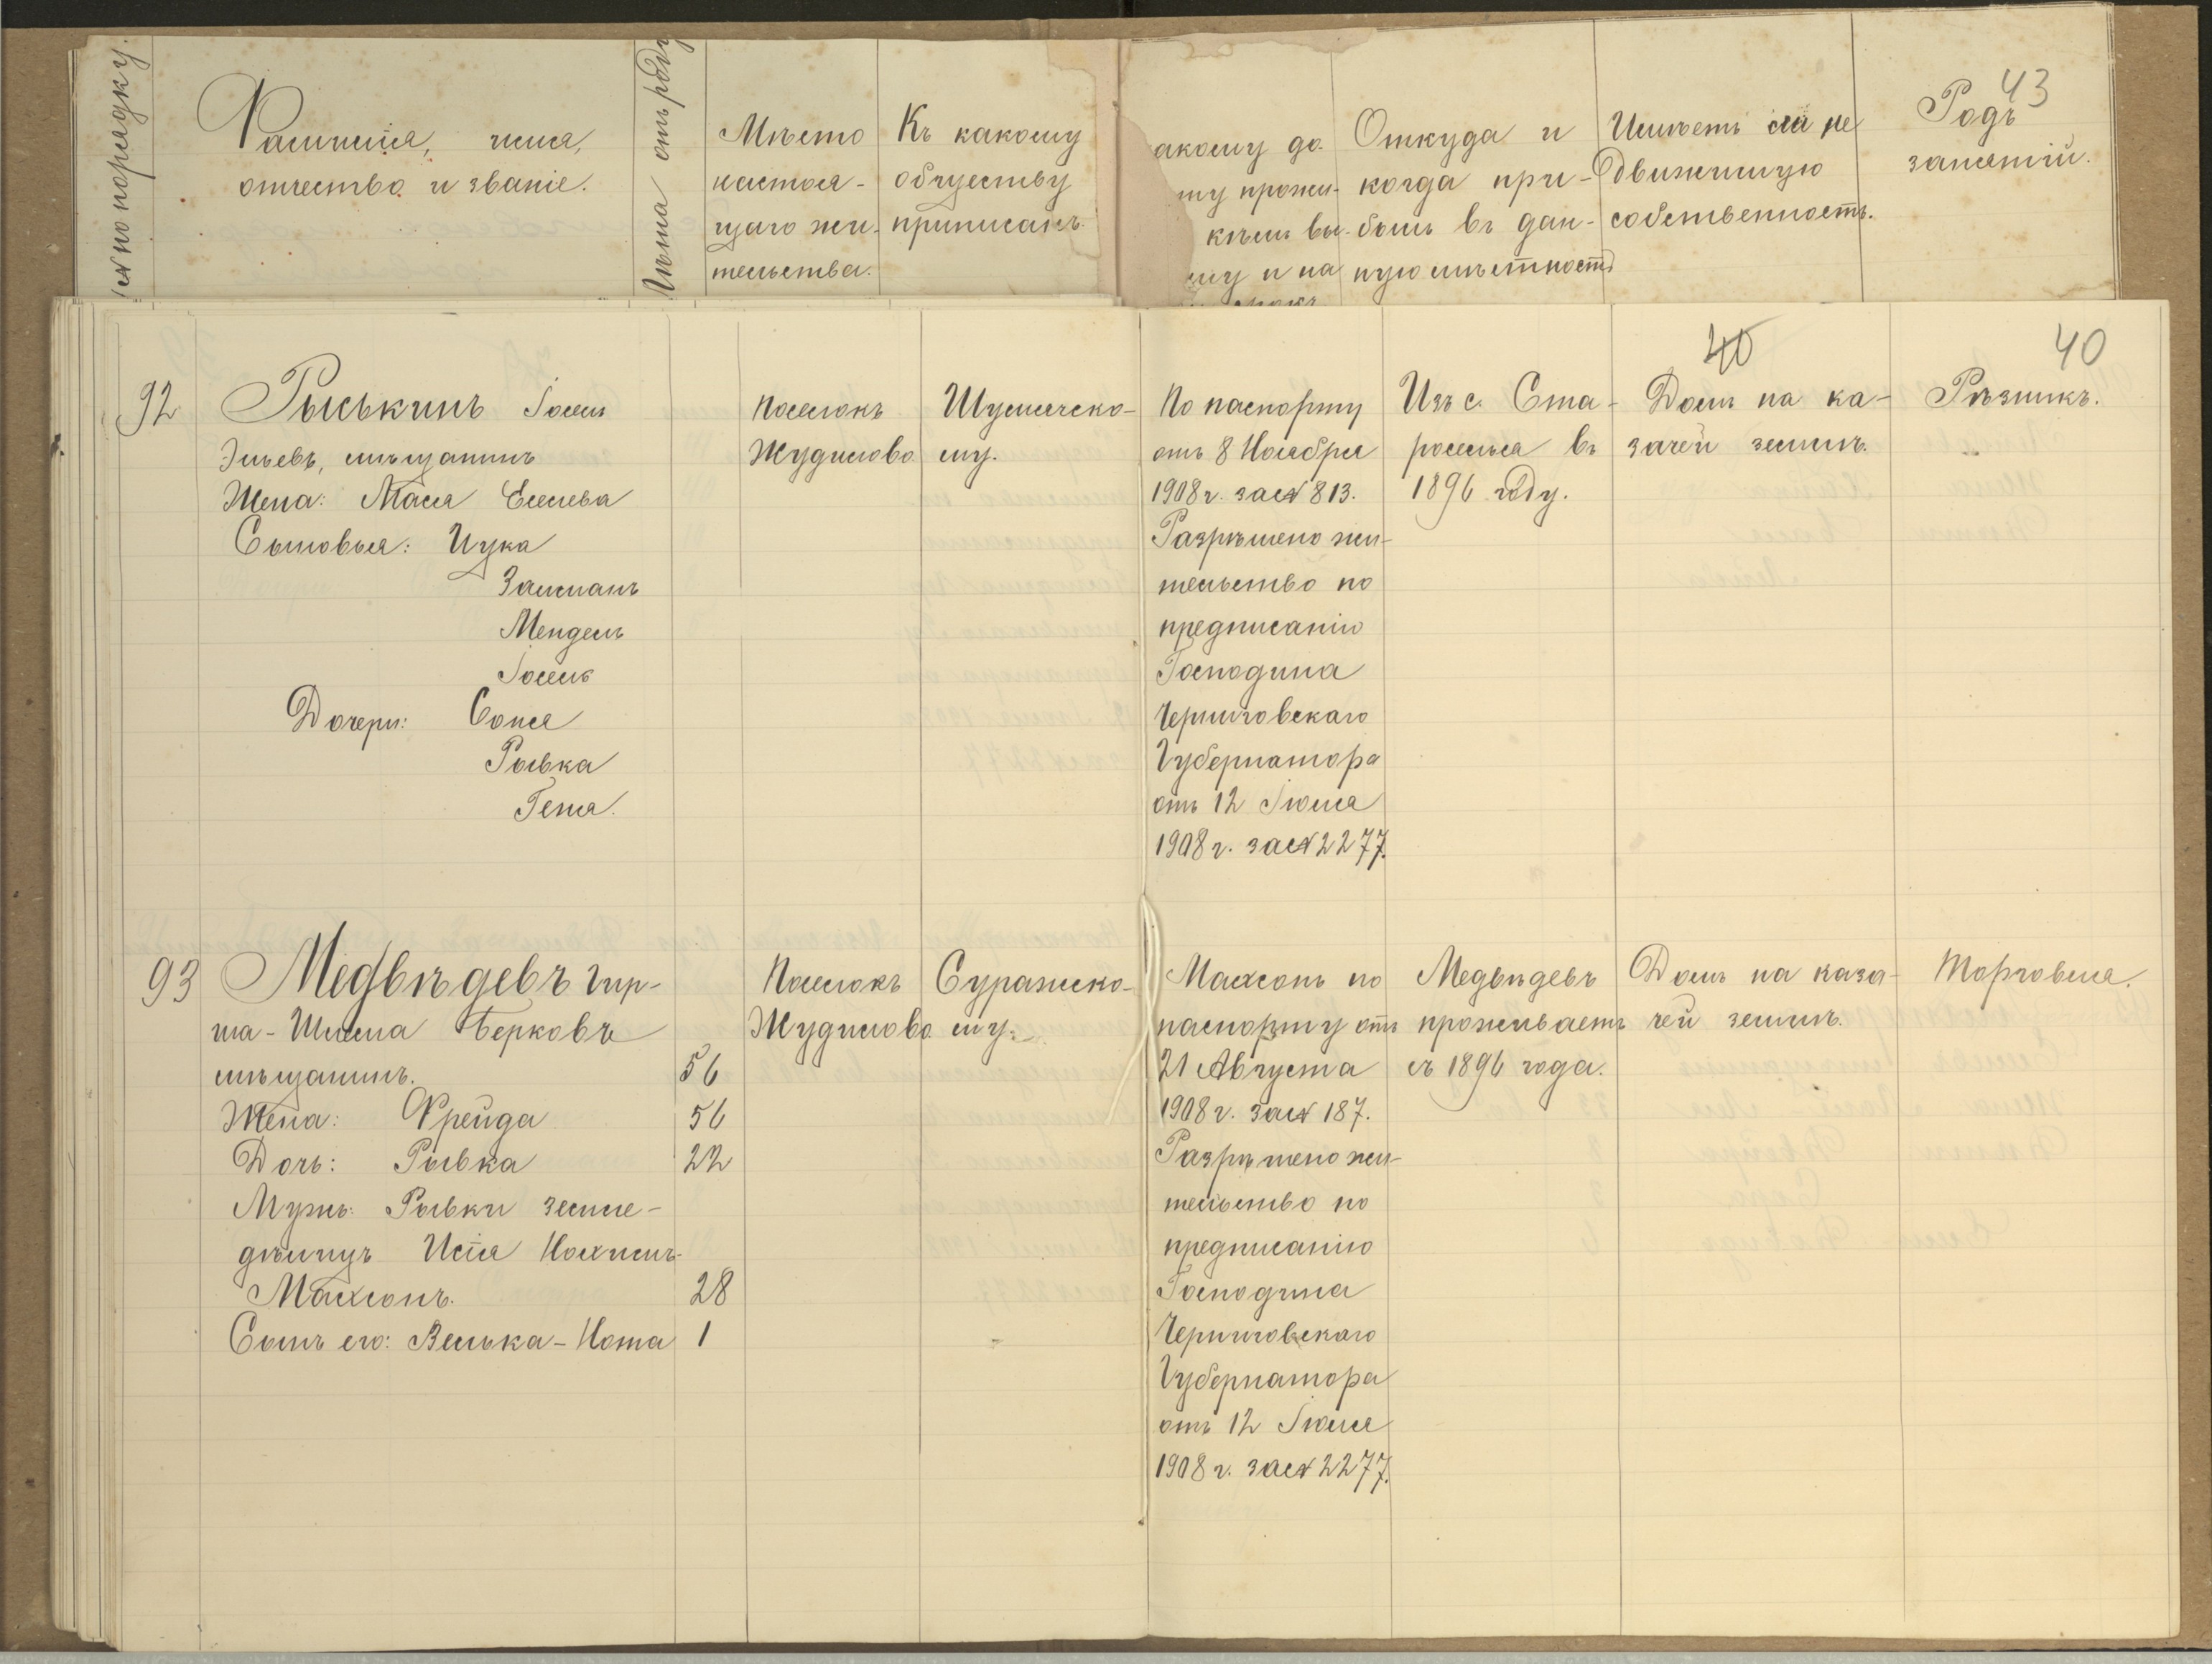 № по порядку.
Фамилія, имя,
отчество и званіе.
Лѣта отъ роду
Мѣсто
настоя-
щаго жи-
тельства.
Къ какому
обществу
приписанъ.
акому до-
му прожи-
кѣмъ вы-
му и на
срокъ
Откуда и
когда при-
былъ въ дан-
ную мѣстность
Имѣетъ ли не
движимую
собственность.
43
Родъ
занятій.
40
40
92
Рыськинъ Іосель
Эльевъ, мѣщанинъ
Жена: Мася Еселева
Сыновья: Ицка
Залманъ
Мендель
Дочери: Соня
Рывка
Геня.
Поселокъ
Жудилово
Шумячско-
му.
По паспорту
отъ 8 Ноября
1908 г. за № 813.
Разрѣшено жи-
тельство по
предписанію
Господина
Черниговскаго
Губернатора
отъ 12 Іюля
1908 г. за № 2277.
Изъ с. Ста-
роселья въ
1896 году.
Домъ на ка-
зачей землѣ.
Рѣзникъ.
93
Медвѣдевъ Гир-
ша-Шлема Берковъ
мѣщанинъ. 56
Жена: Фрейда 56
Дочь: Рывка 22
Мужъ: Рывки земле-
дѣлецъ Исія Нохимъ-
Махлонъ. 28
Сынъ его: Велька-Нота 1
Поселокъ
Жудилово
Суражско-
му.
Махлонъ по
паспорту отъ
21 Августа
1908 г. за № 187.
Разрѣшено жи-
тельство по
предписанію
Господина
Черниговскаго
Губернатора
отъ 12 Іюля
1908 г. за № 2277.
Медвѣдевъ
проживаетъ
съ 1896 года.
Домъ на каза-
чей землѣ.
Торговля.